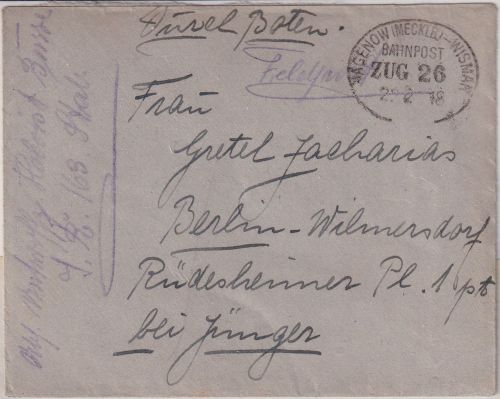 Durch Boten.
Feldpost
HAGENOW (MECKLB.)-WISMAR
BAHNPOST
ZUG 26
2. 2 18
Frau
Gretel Zacharias
Berlin-Wilmersdorf
Rüdesheimer Pl. 1 pt
bei Jünger
J. R. 163 Stab